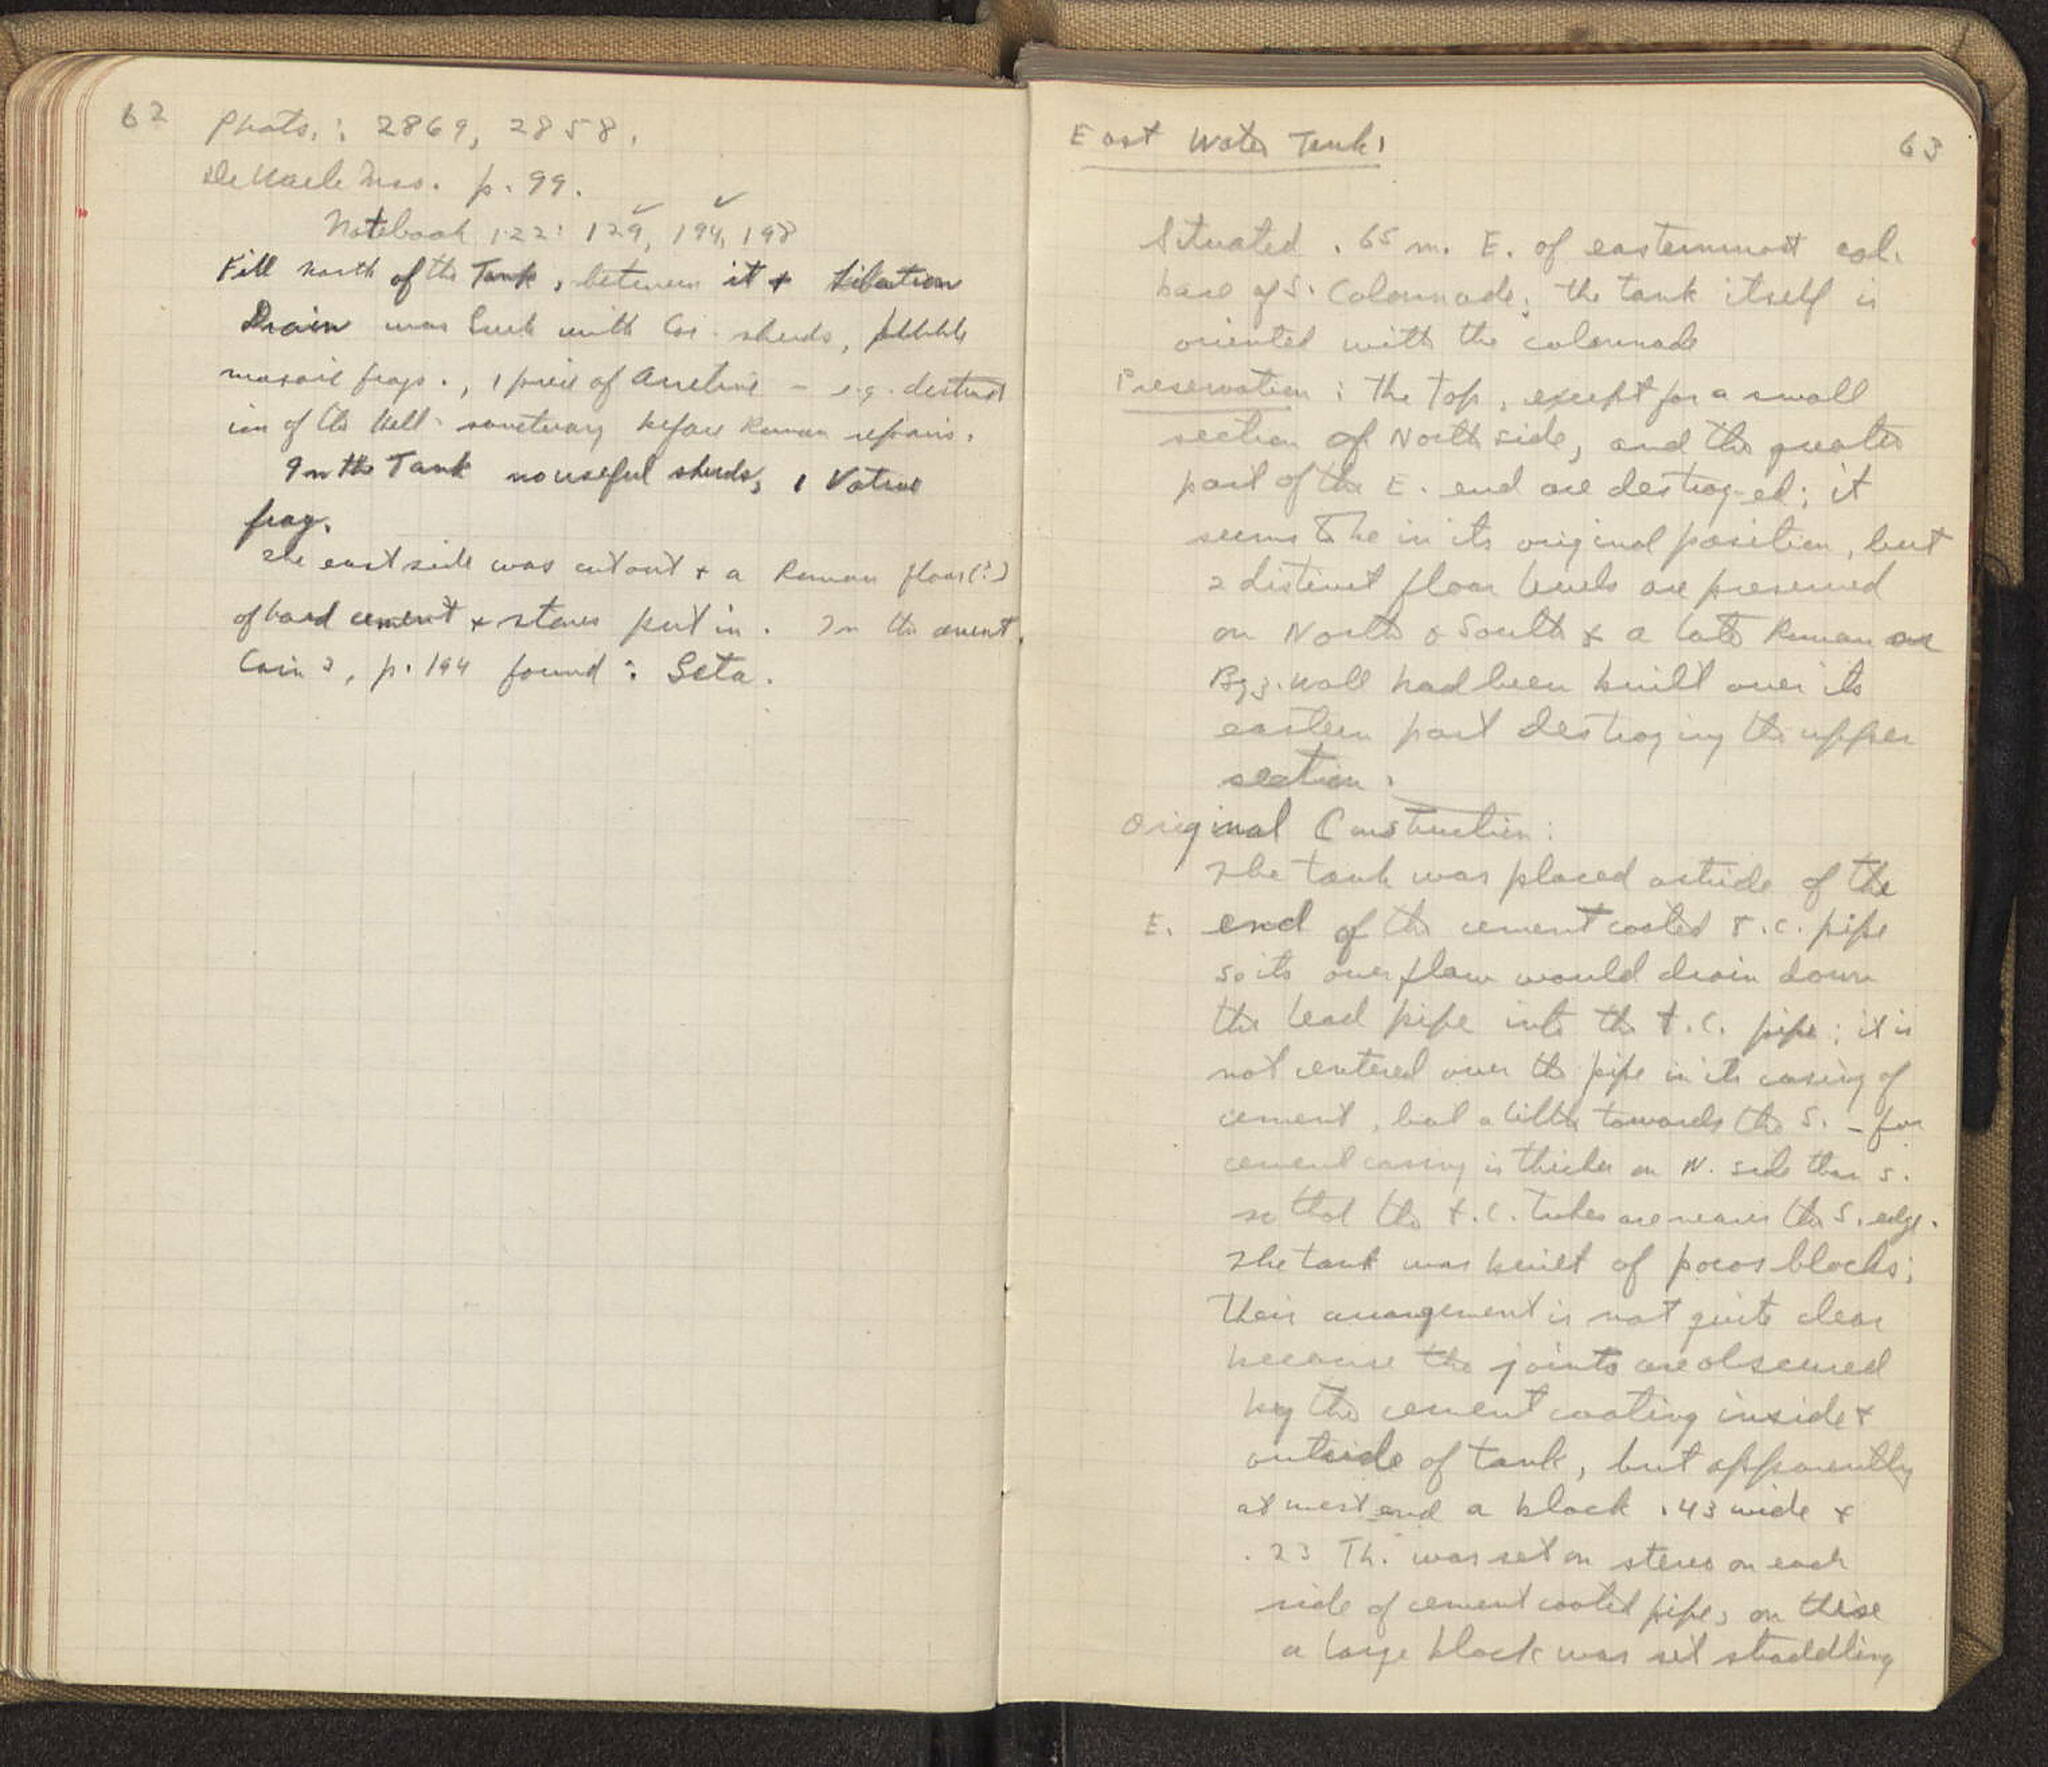 62
Phots.: 2869, 2858.
De Waele Mss. p. 99.
Notebook 122: 129, 194, 198
Fill north of the Tank, between it + Libation
Drain was Greek with Cor. sherds, pebble
mosaic frags., 1 piece of Arretine – e.g. destruct
ion of the Hell. sanctuary before Roman repairs.
In the Tank no useful sherds, 1 Votive
frag.
The east side was cut out + a Roman floor (?)
of hard cement + stones put in. In the cement,
Coin 2, p. 194 found: Geta.
East Water Tank:
63
Situated .65 m. E. of easternmost col.
base of S. Colonnade; the tank itself is
oriented with the colonnade
Preservation: The top, except for a small
section of North side, and the greater
part of the E. end are destroy-ed; it
seems to be in its original position, but
2 distinct floor levels are preserved
on North & South + a late Roman or
Byz. wall had been built over its
eastern part destroying the upper
section.
Original Construction:
The tank was placed astride of the
E. end of the cement coated T.C. pipe
so its overflow would drain down
the lead pipe into the T.C. pipe; it is
not centered over the pipe in its casing of
cement, but a little towards the S. – for
cement casing is thicker on N. side than S.
so that the T.C. tubes are nearer the S. edge.
The tank was built of poros blocks;
their arrangement is not quite clear
because the joints are obscured
by the cement coating inside +
outside of tank, but apparently
at west end a block .43 wide +
.23 Th. was set on stereo on each
side of cement coated pipe; on these
a large block was set straddling